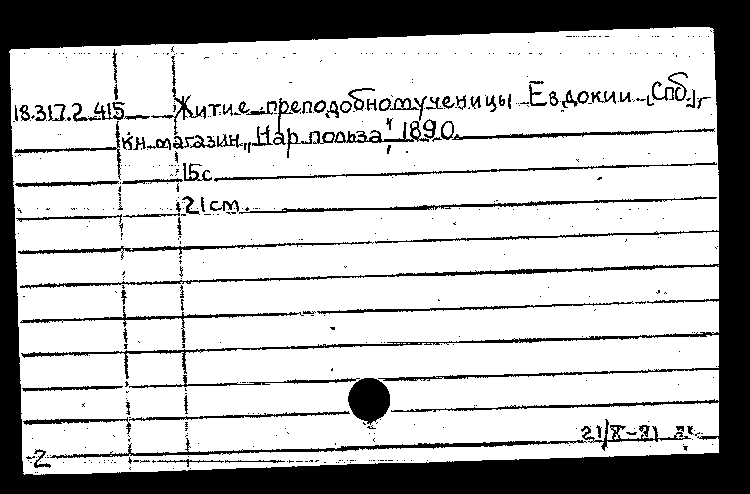 18.317.2.415 Житие преподобномученицы Евдокии [Спб.],
кн. магазин „Нар. польза“, 1890.
15с.
21см.
21/X-91
2